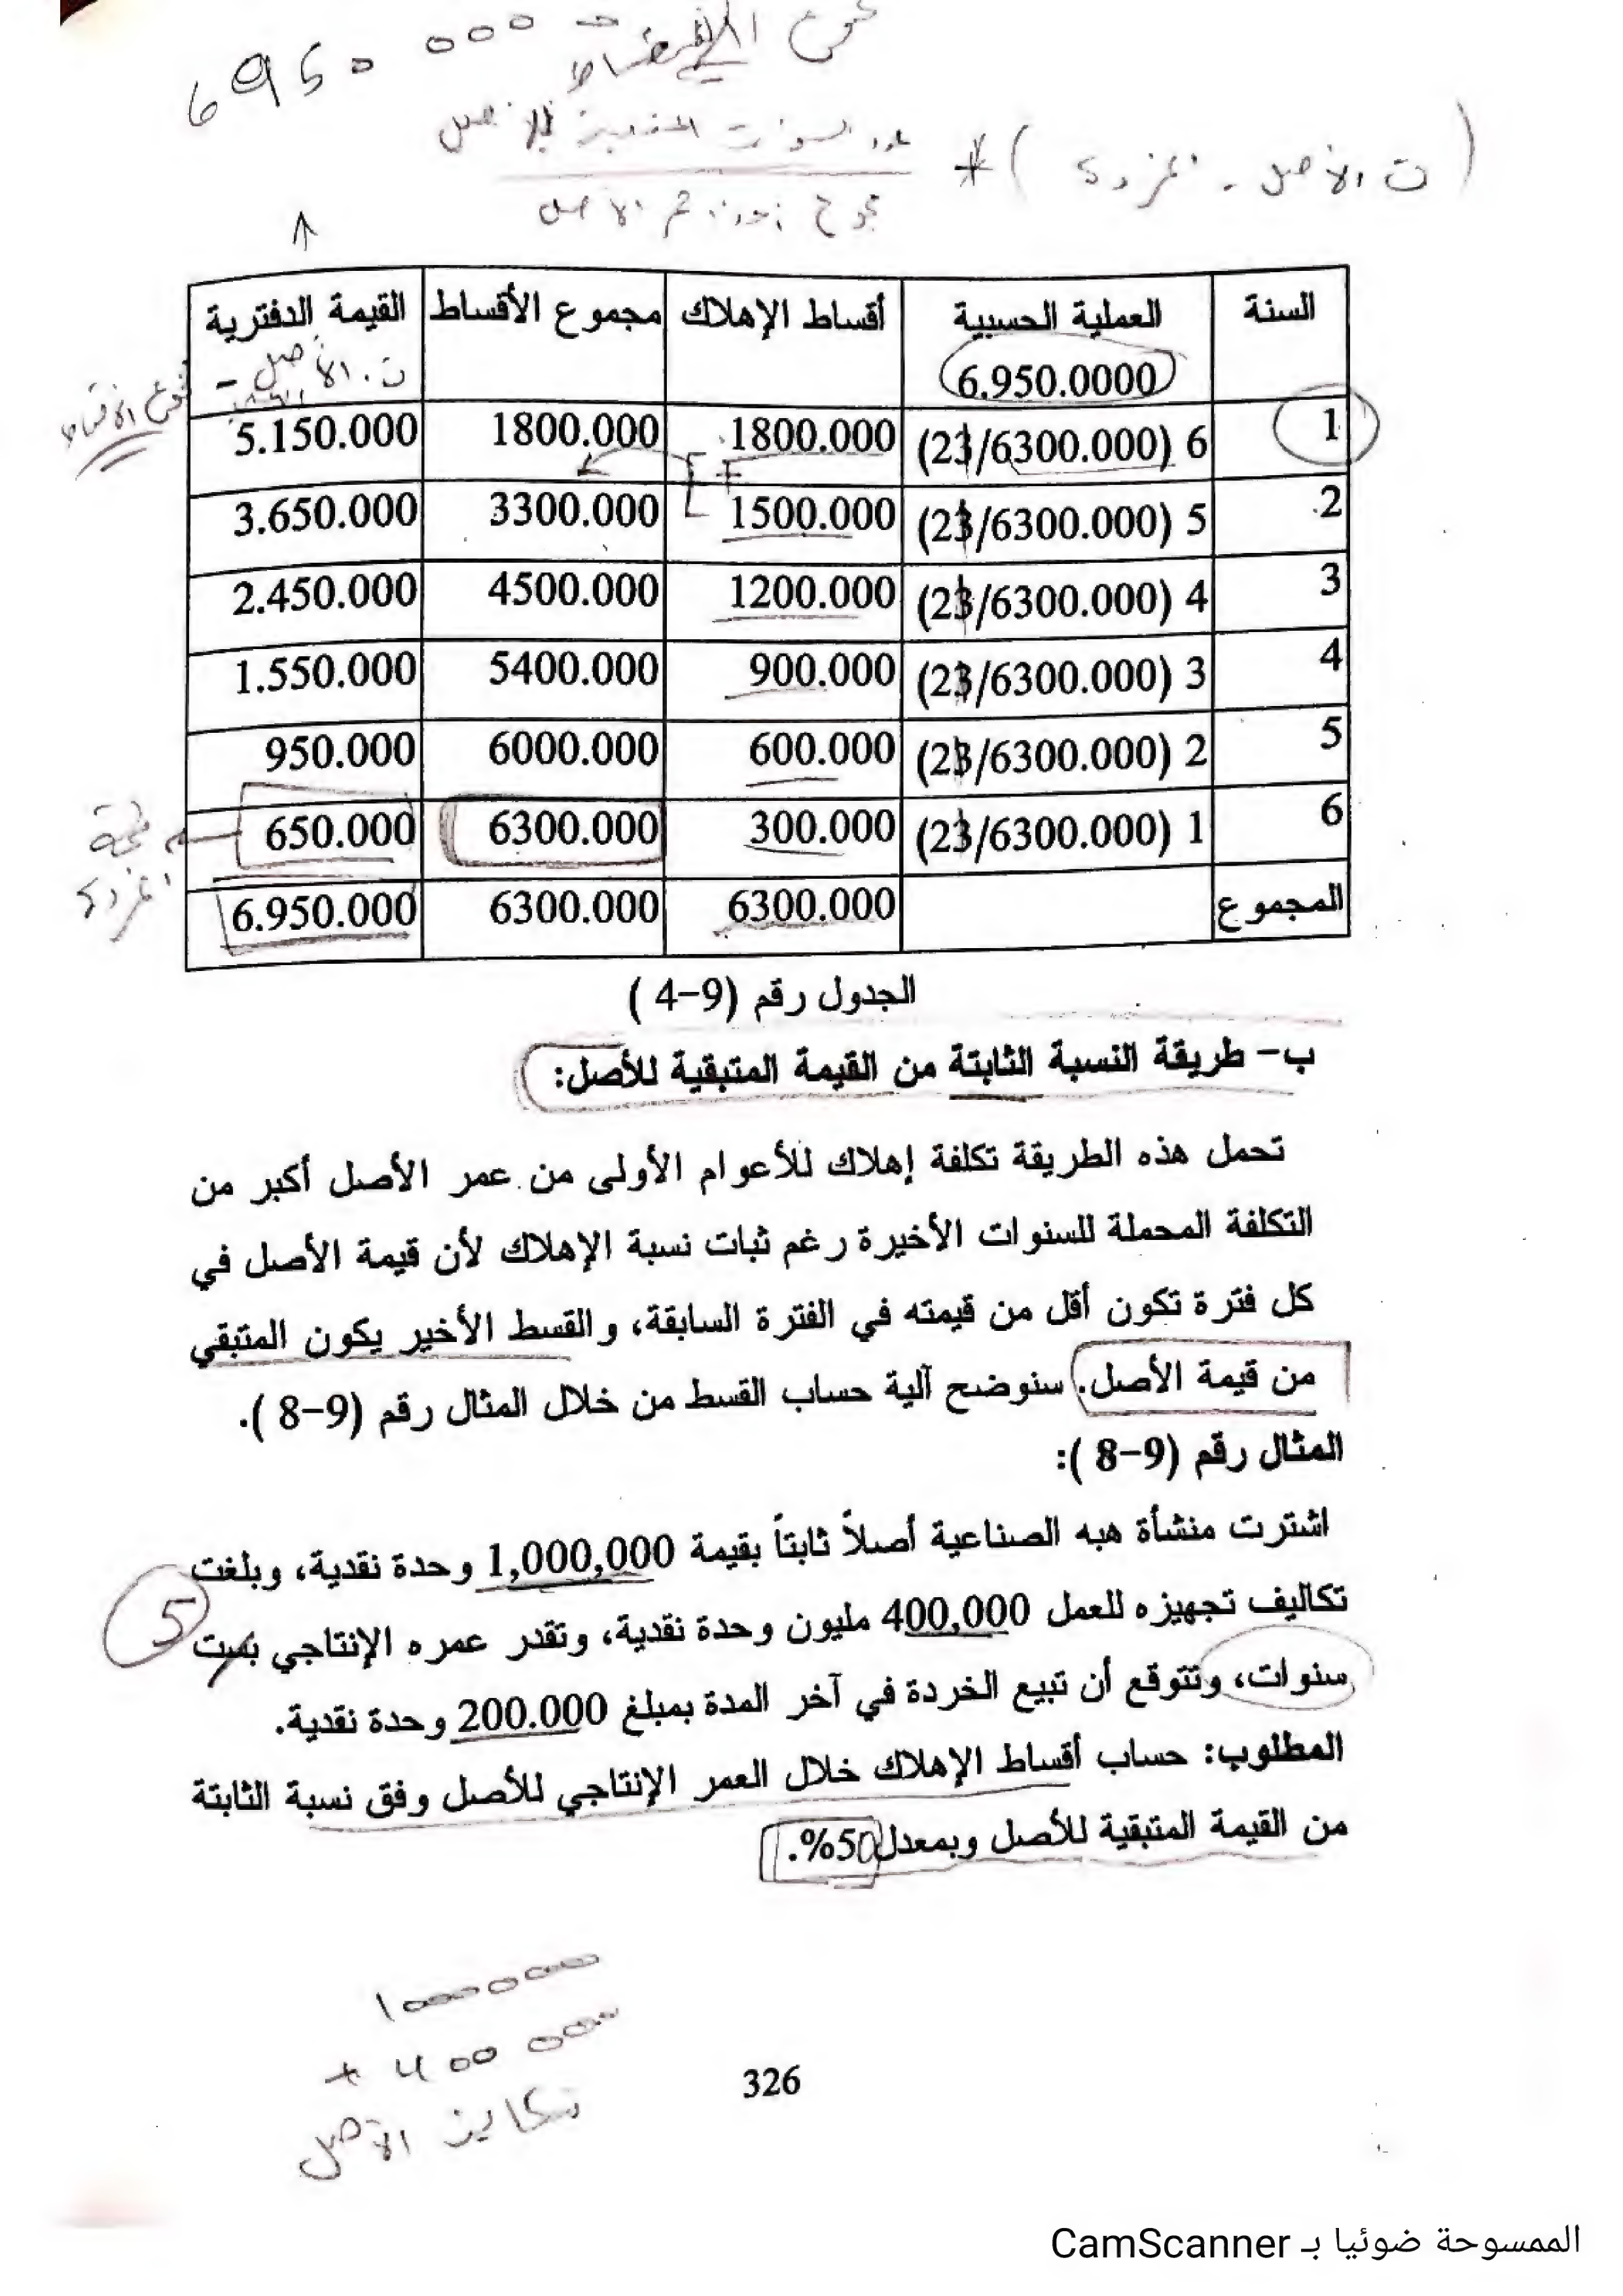 6950 000
( ت الأصل - الخردة ) *
عدد السنوات المتبقية للأصل
مجموع أرقام الأصل
السنة العملية الحسبية أقساط الإهلاك مجموع الأقساط القيمة الدفترية
6.950.0000 ت. الأصل -
مجموع الأقساط
1 6 (6300.000/21) 1800.000 1800.000 5.150.000
2 5 (6300.000/21) 1500.000 3300.000 3.650.000
3 4 (6300.000/21) 1200.000 4500.000 2.450.000
4 3 (6300.000/21) 900.000 5400.000 1.550.000
5 2 (6300.000/21) 600.000 6000.000 950.000
6 1 (6300.000/21) 300.000 6300.000 650.000
قيمة الخردة
المجموع 6300.000 6300.000 6.950.000
الجدول رقم (9-4 )
ب- طريقة النسبة الثابتة من القيمة المتبقية للأصل:
تحمل هذه الطريقة تكلفة إهلاك للأعوام الأولى من عمر الأصل أكبر من
التكلفة المحملة للسنوات الأخيرة رغم ثبات نسبة الإهلاك لأن قيمة الأصل في
كل فترة تكون أقل من قيمته في الفترة السابقة، والقسط الأخير يكون المتبقي
من قيمة الأصل. سنوضح آلية حساب القسط من خلال المثال رقم (9-8 ).
المثال رقم (9-8 ):
اشترت منشأة هبه الصناعية أصلاً ثابتاً بقيمة 1,000,000 وحدة نقدية، وبلغت
تكاليف تجهيزه للعمل 400,000 مليون وحدة نقدية، وتقدر عمره الإنتاجي بست 5
سنوات، وتتوقع أن تبيع الخردة في آخر المدة بمبلغ 200.000 وحدة نقدية.
المطلوب: حساب أقساط الإهلاك خلال العمر الإنتاجي للأصل وفق نسبة الثابتة
من القيمة المتبقية للأصل وبمعدل 50%.
1000000
+ 400 000
تكاليف الأصل
326
الممسوحة ضوئيا بـ CamScanner